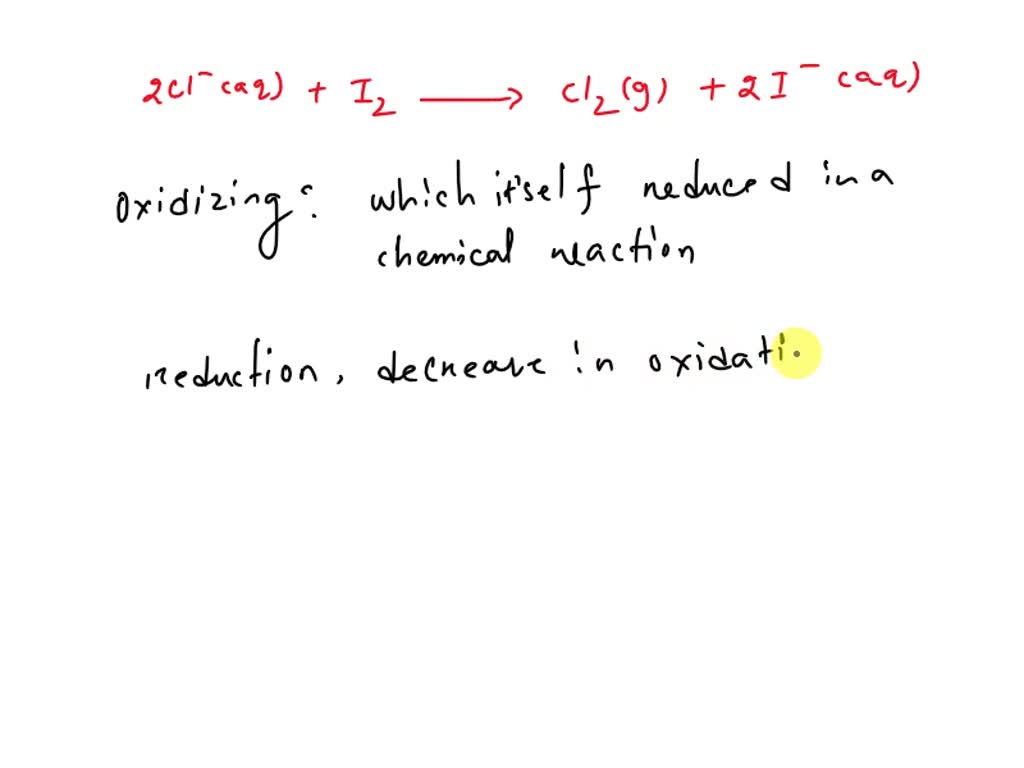 2Cl⁻ (aq) + I₂ ⟶ Cl₂ (g) + 2I⁻ (aq)
oxidizing : which it'self reduced in a
chemical reaction
reduction, decrease in oxidati